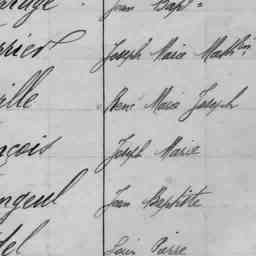 Jean Bapt=
Joseph Marie Math[in]
ille René Marie Joseph
nçois Joseph Marie
ngeul Jean Baptiste
del Louis Pierre